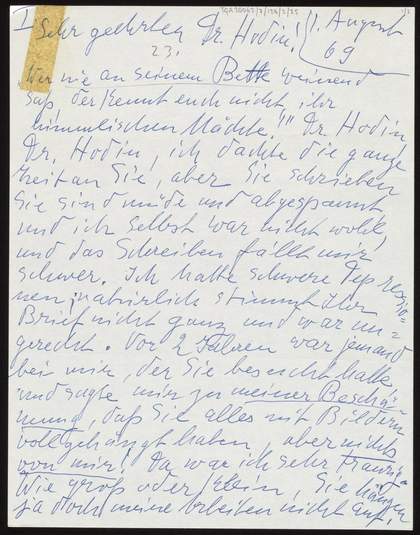 I
TGA 20062/2/126/2/25
1/2
Sehr geehrter Dr. Hodin! 1. August
23. 69
Wer nie an seinem Bette weinend
saß, der kennt euch nicht, ihr
himmlischen Mächte!"" Dr. Hodin,
Dr. Hodin, ich dachte die ganze
Zeit an Sie, aber Sie schrieben
Sie sind müde und abgespannt
und ich selbst war nicht wohl,
und das Schreiben fällt mir
schwer. Ich hatte schwere Depressio=
nen, natürlich stimmt Ihr
Brief nicht ganz und war un=
gerecht. Vor 2 Jahren war jemand
bei mir, der Sie besucht hatte
und sagte mir zu meiner Beschä=
mung, daß Sie alles mit Bildern
vollgehängt haben, aber nichts
von mir! Da war ich sehr traurig.
Wie groß oder klein, Sie hängen
ja doch meine Arbeiten nicht auf,